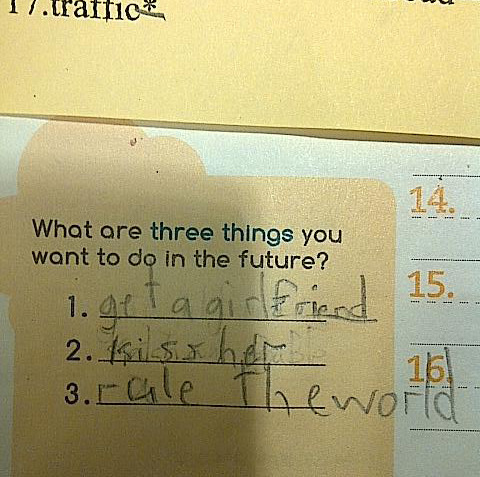 17.traffic*
What are three things you
want to do in the future?
1. get a girlfriend
2. her
3. rule The world
14.
15.
16.